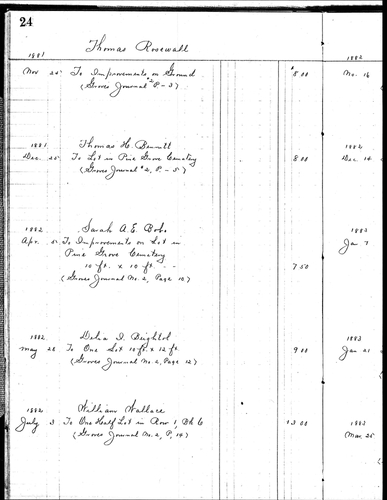 24
Thomas Rosewall
1881 1882
Nov. 25 To Improvements on Ground 8.00 Nov. 16
(Groves Journal #2 P-3)
1881 Thomas H. Bennett 1882
Dec. 25 To Lot in Pine Grove Cemetery 8.00 Dec. 14
(Groves Journal #2, P.-5)
1882 Sarah A. E. 1883
Apr. 5 To Improvements on Lot in Jan 7
Pine Grove Cemetery
10 ft. x 10 ft. - - 7.50
(Groves Journal No. 2, Page 10)
1882 Delia I. 1883
May 22 To One Lot 10 ft. x 12 ft. 9.00 Jan 21
(Groves Journal No. 2, Page 12)
1882 William Wallace 1883
July 3 To One Half Lot in Row 1, Bk 6 13.00
(Groves Journal No. 2, P. 14) Mar. 25